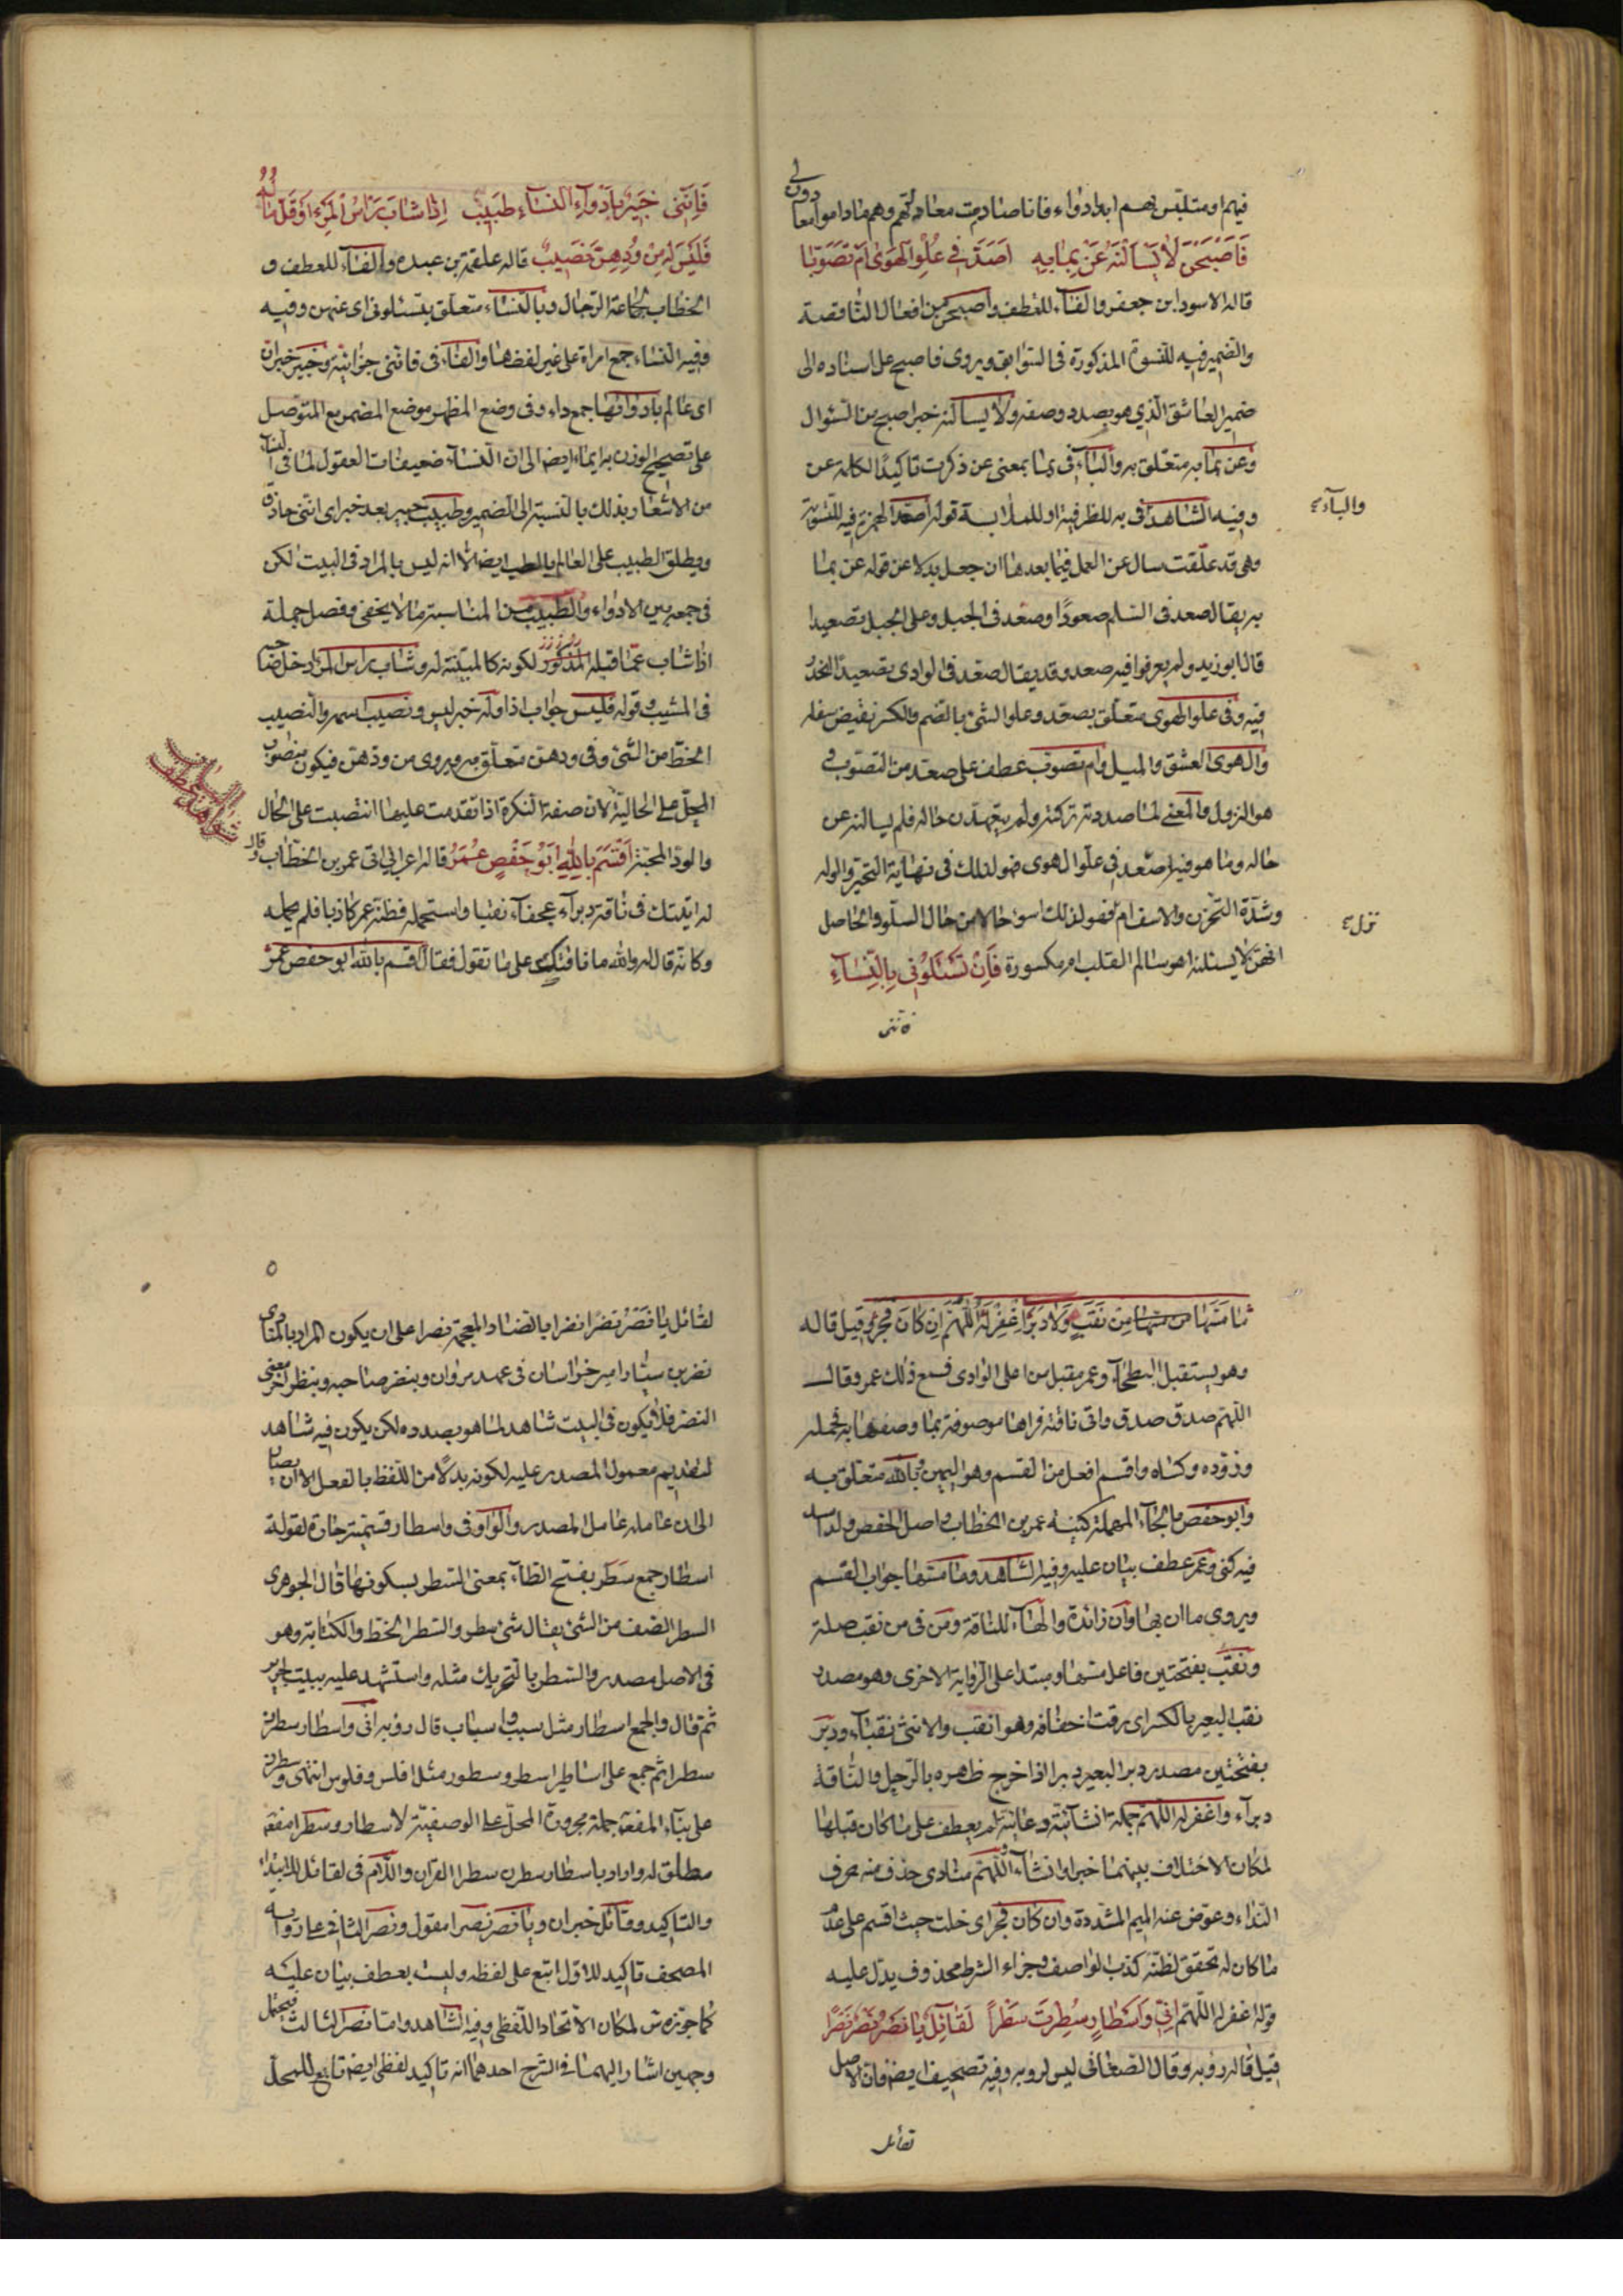 فيهم او متلبس بهم ابدا دواء فانا صادمت معاد لهم وهم ما داموا معا
دوولى
فَاَصْبَحْنَ لا يَسْأَلْنَهُ عَنْ بِمَا بِهِ اَصَعَّدَ فِى عُلْوِ الْهَوَى اَمْ تَصَوَّبَا
قاله الاسود ابن جعفر والفاء للعطف واصبحن من افعال الناقصة
والضمير فيه للنسوة المذكورة فى السوابق ويروى فاصبح على اسناده الى
ضمير العاشق الذي هو بصدد وصفه ولا يسألنه خبر اصبح من السؤال
وعن بما به متعلق به والباء فى بما بمعنى عن ذكرت تاكيدًا لكلمة عن
وفيه الشاهد فى به للظرفية او للملابسة قوله اصعد الهمزة فيه للتسوية
والباء
وهى قد علقت سال عن العمل فيما بعدها ان جعل بدلا عن قوله عن بما
به يقال صعد فى السلم صعودًا وصعّد فى الجبل وعلى الجبل تصعيدا
قال ابو زيد ولم يعرفوا فيه صعد وقد يقال صعّد فى الوادى تصعيدًا انحدر
فيه وفى علو الهوى متعلق بصعّد وعلو الشئ بالضم والكسر نقيض سفله
والهوى العشق والميل وام تصوب عطف على صعّد من التصوب و
هو النزول والمعنى لما صددته تركته ولم يتعهدن حاله فلم يسالنه عن
حاله وما هو فيه اصعد فى علو الهوى فهو لذلك فى نهاية التحير والوله
وشدة التحزن والاسقام فهو لذلك اسوء حالا من حال السلو والحاصل
نزل
انهن لا يسئلنه اهو سالم القلب ام مكسورة فَاِنْ تَسْئَلُوْنِى بِالنِّسَاءِ
فانّنى
فَاِنَّنِى خَبِيْرٌ بِاَدْوَاءِ النِّسَاءِ طَبِيْبٌ اِذَا شَابَ رَأْسُ الْمَرْءِ اَوْ قَلَّ مَالُهُ
فَلَيْسَ لَهُ مِنْ وُدِّهِنَّ نَصِيْبٌ قاله علقمة بن عبده والفاء للعطف و
الخطاب لجماعة الرجال وبالنساء متعلق بتسئلونى اى عنهن وفيه
وفيه النساء جمع امراة على غير لفظها والفاء فى فانّنى جزائية وخبير خبر ان
اى عالم بادوائها جمع داء وفى وضع المظهر موضع المضمر مع التوصل
على تصحيح الوزن به ايماء ايضا الى ان النساء ضعيفات العقول لما فى النساء
من الاشعار بذلك بالنسبة الى الضمير وطبيب خبر بعد خبر اى انّنى حاذق
ويطلق الطبيب على العالم بالطب ايضا الا انه ليس بالمراد فى البيت لكن
فى جمعه بين الادواء والطبيب من المناسبة ما لا يخفى وفصل جملة
اذا شاب عمّا قبله المذكور لكونه كالمبيّنة له وشاب راس المرء دخل صاحبه
فى المشيب وقوله فليس جواب اذا وله خبر ليس ونصيب اسمه والنصيب
الحظ من الشئ وفى ودهنّ متعلق به ويروى من ودهنّ فيكون منصوب
المحل على الحالية لان صفة النكرة اذا تقدمت عليها انتصبت على الحال
شواهد عطف البيان
والودّ المحبّة اَقْسَمَ بِاللهِ اَبُوْ حَفْصٍ عُمَرُ قاله اعرابى اتى عمر بن الخطاب وقال
له اتيتك فى ناقة دبراء عجفاء نقبا واستحمله فظنه عمر كاذبا فلم يحمله
وكانه قال له والله ما فاقتك على ما تقول فقال اقسم بالله ابو حفص عمر
مَا مَسَّهَا مِنْ نَقَبٍ وَلَا دَبَرْ اِغْفِرْ لَهُ اللّهُمَّ اِنْ كَانَ فَجَرْ قيل قاله
وهو يستقبل البطحاء وعمر مقبل من اعلى الوادى فسمع ذلك عمر وقال
اللهم صدق صدق واتى ناقته فراها موصوفة بما وصفها به فحمله
وزوّده وكساه واقسم افعل من القسم وهو اليمين وبالله متعلق به
وابو حفص بالحاء المهملة كنية عمر بن الخطاب واصل الحفص ولد اسد
فيه كنى وعمر عطف بيان عليه وفيه الشاهد وما مسها جواب القسم
ويروى ما ان بها وان زائدة والهاء للناقة ومن فى من نقب صلة
ونقب بفتحتين فاعل مسها ومبتدا على الرواية الاخرى وهو مصدر
نقب البعير بالكسر اى رقت اخفافه وهو انقب والانثى نقباء ودبر
بفتحتين مصدر دبر البعير دبرا اذا اخرج ظهره بالرحل والناقة
دبراء واغفر له اللهم جملة انشائية دعائية لم يعطف على ما كان قبلها
لمكان الاختلاف بينهما خبرا وانشاء واللهم منادى حذف منه حرف
النداء وعوض عنه الميم المشددة وان كان فجر اى خلت حيث اقسم على عدم
ما كان له تحقق لظنه كذب الواصف وجزاء الشرط محذوف يدل عليه
قوله اغفر له اللهم اِنِّى وَاَسْطَارٍ سُطِرْنَ سَطْرًا لَقَائِلٌ يَا نَصْرُ نَصْرٌ نَصْرًا
قيل قاله رؤبه وقال الصغانى ليس لروبه وفيه تصحيف ايضا فان الاصل
لقائل
٥
لقائل يا نَضْرُ نضرًا نضرا بالضاد المعجمة نصرا على ان يكون المراد بالمنادى
نصر بن سيّار امير خراسان فى عهد مروان وبنضر صاحبه وبنظر اخرى معنى
النضر فلا يكون فى البيت شاهد لما هو بصدده لكن يكون فيه شاهد
لتقديم معمول المصدر عليه لكونه بدلًا من اللفظ بالفعل الا ان يصار
الى ان عامله عامل المصدر والواو فى واسطار قسمية جارة لقوله
اسطار جمع سَطَر بفتح الطاء بمعنى السطر بسكونها قال الجوهرى
السطر الصف من الشئ يقال بنى سطر والسطر الخط والكتابة وهو
فى الاصل مصدر والسطر بالتحريك مثله واستشهد عليه ببيت لجرير
ثم قال والجمع اسطار مثل سبب واسباب قال روبه انى واسطار سطرن
سطرا ثم جمع على اساطير اسطر وسطور مثل افلس وفلوس انتهى وسطرن
على بناء المفعـ جملة مجرورة المحلّ على الوصفيّة لاسطار وسطرا مفعـ
مطلق له واراد باسطار سطرن سطرا القران واللام فى لقائل للابتداء
والتاكيد وقائل خبر ان ويا نصر نصرا مقول ونصر الثانى على رواية
المصحف تاكيد للاول اتبع على لفظه وليست بعطف بيان عليه
كما جوّزه ش لمكان الاتحاد اللفظى وفيه الشاهد واما نصر الثالث فيحتمل
وجهين اشار اليهما فى الشرح احدهما انه تاكيد لفظى ايضا تابع للمحلّ